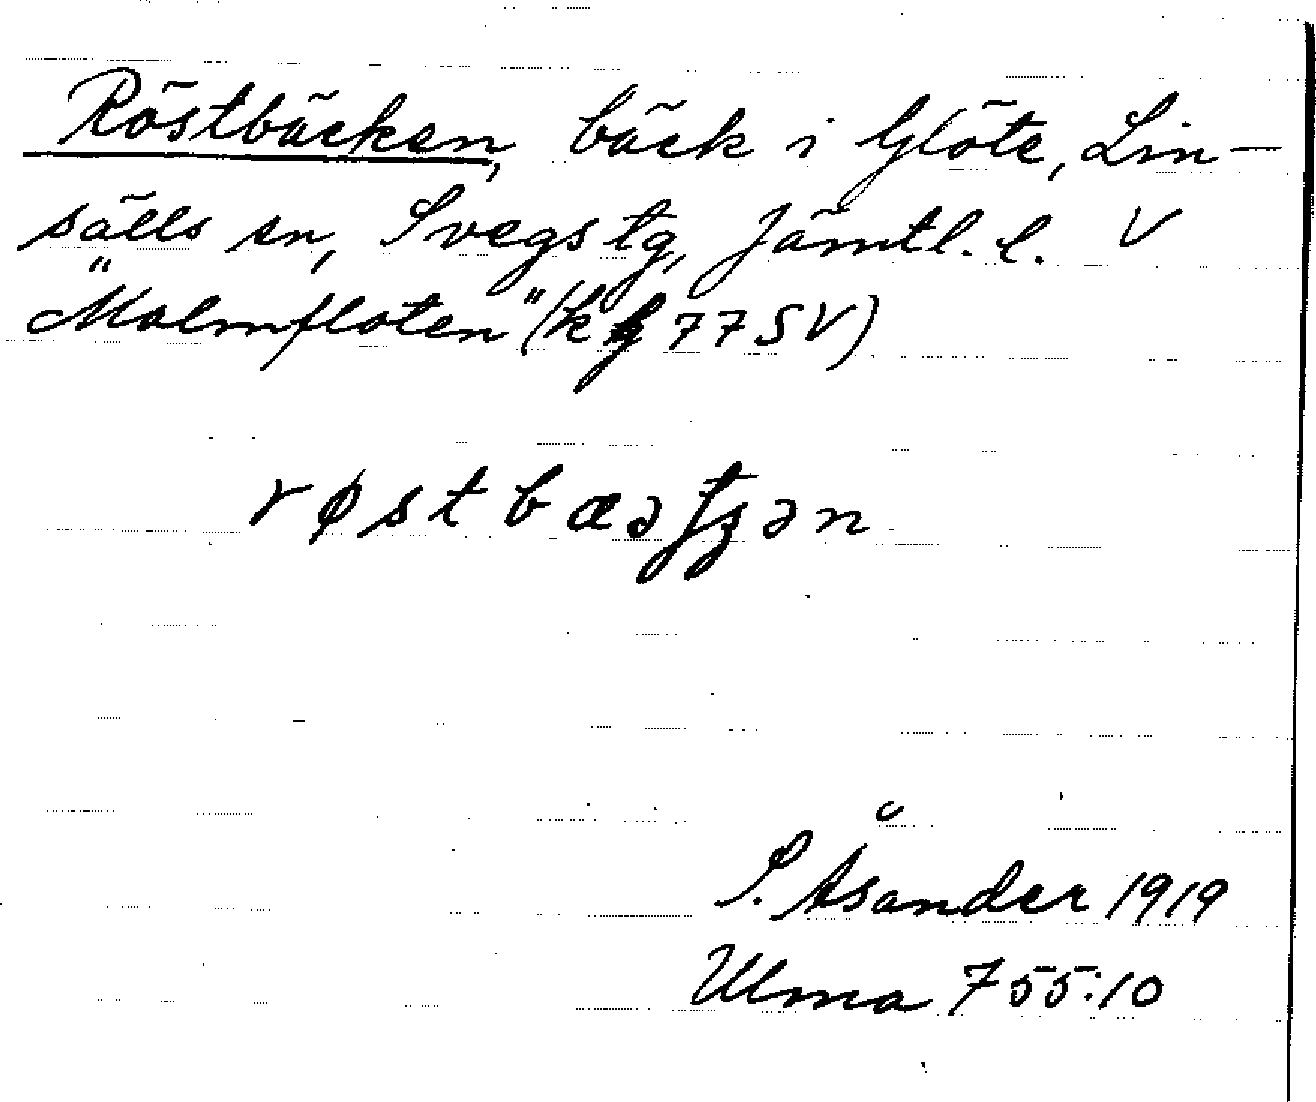 Röstbäcken, bäck i Glöte, Lin-
sälls sn, Svegs tg, Jämtl. l. V
"Malmfloten" (k 77 SV)
røstbæəƫʒən
S. Åsander 1919
Ulma 755:10